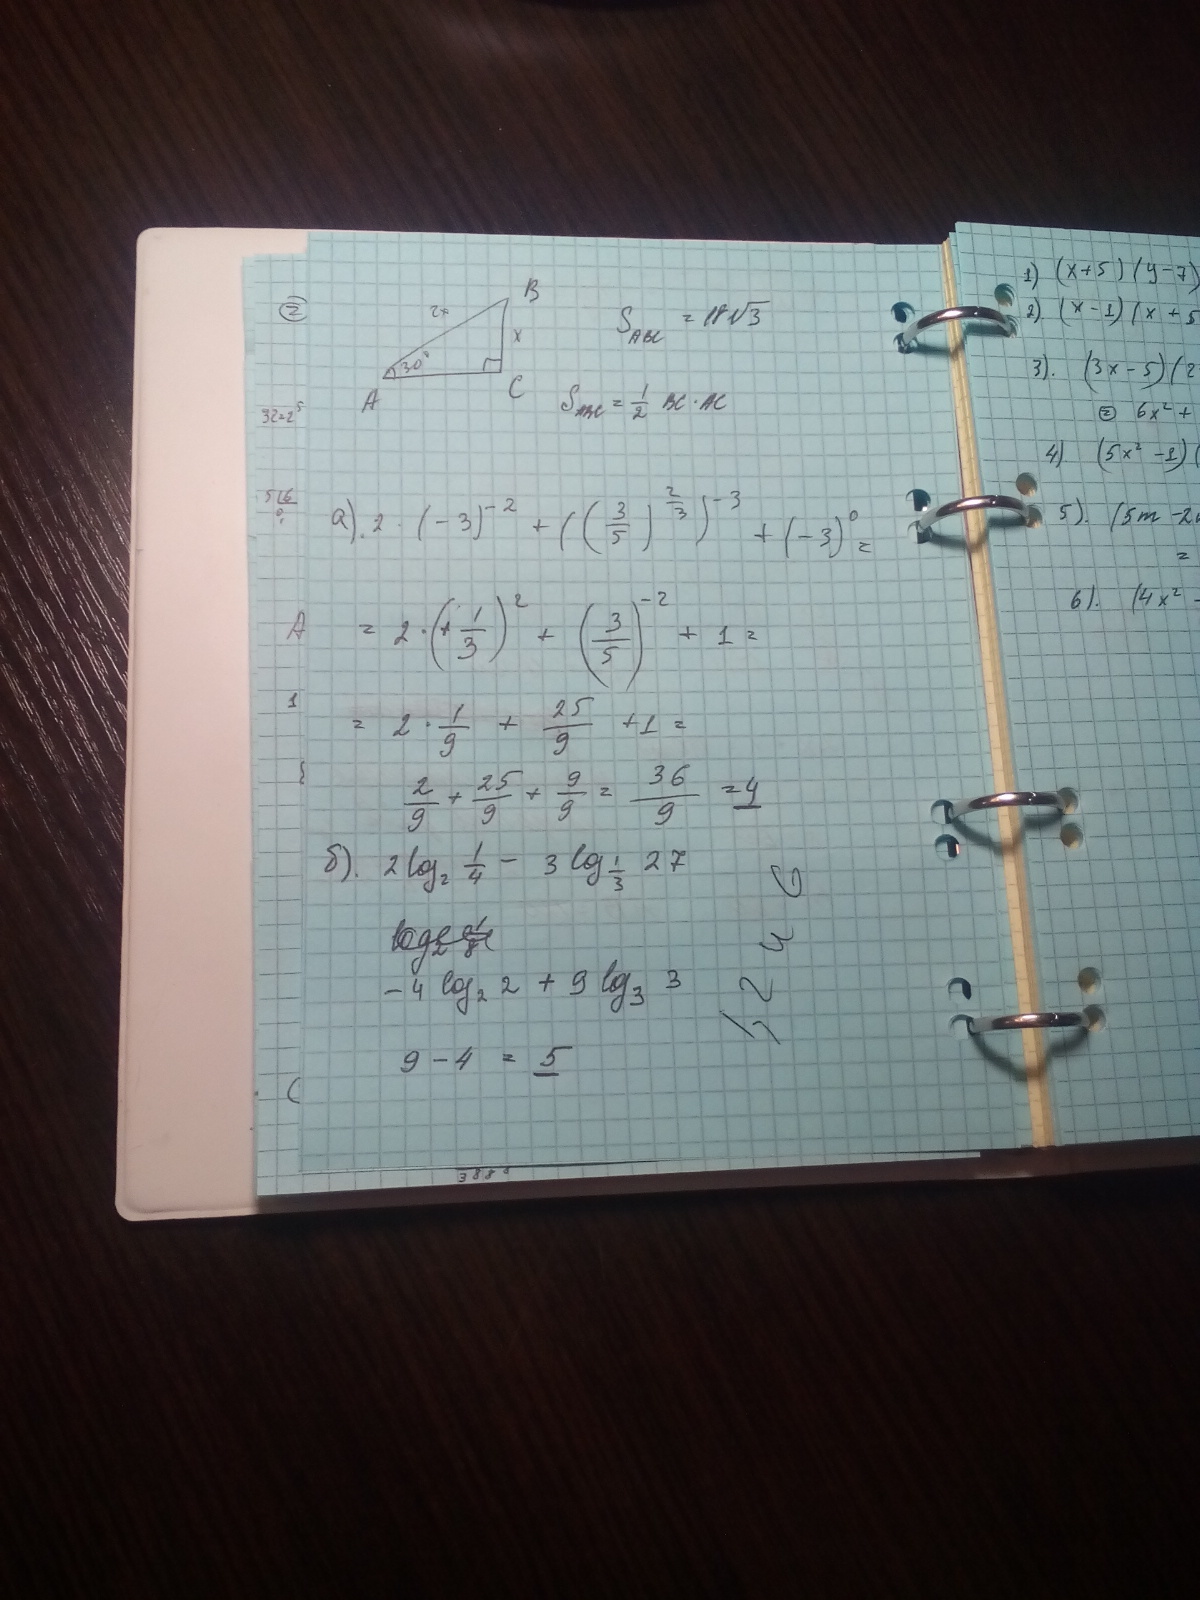 2
B
2x
S_ABC = 18√3
x
30°
A
C
S_ABC = 1/2 BC · AC
32=2^5
а). 2 · (-3)^-2 + ((3/5)^2/3)^-3 + (-3)^0 =
A
= 2 · (+1/3)^2 + (3/5)^-2 + 1 =
1
= 2 · 1/9 + 25/9 + 1 =
2/9 + 25/9 + 9/9 = 36/9 = 4
б). 2 log_2 1/4 - 3 log_1/3 27
-4 log_2 2 + 9 log_3 3
9 - 4 = 5
1) (x+5)(y-7)
2). (x-1)(x+5
3). (3x-5)(2
= 6x² +
4) (5x² -1)(
5). (5m -2
=
6). (4x² -